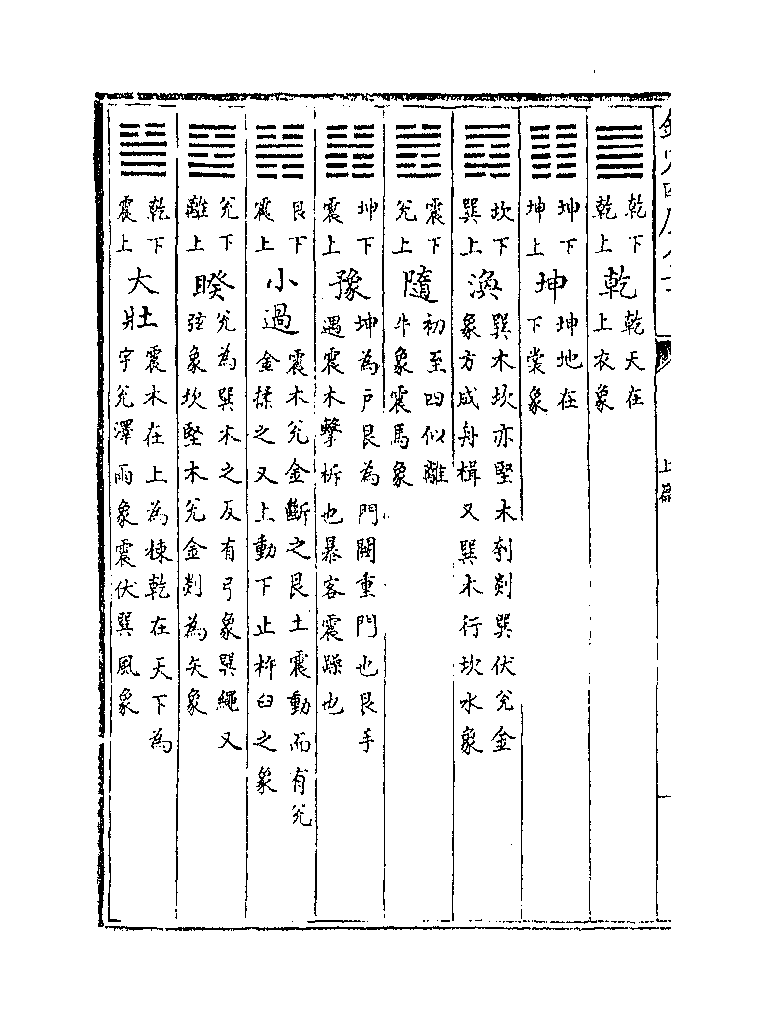 乾下
乾上
乾
乾天在
上衣象
坤下
坤上
坤
坤地在
下裳象
坎下
巽上
渙
巽木坎亦堅木刳剡巽伏兊金
象方成舟楫又巽木行坎水象
震下
兊上
隨
初至四似離
牛象震馬象
坤下
震上
豫
坤為戶艮為門闢重門也艮手
遇震木擊柝也暴客震躁也
艮下
震上
小過
震木兊金斷之艮土震動而有兊
金揉之又上動下止杵臼之象
兊下
離上
睽
兊為巽木之反有弓象巽繩又
弦象坎堅木兊金剡為矢象
乾下
震上
大壯
震木在上為棟乾在天下為
宇兊澤雨象震伏巽風象